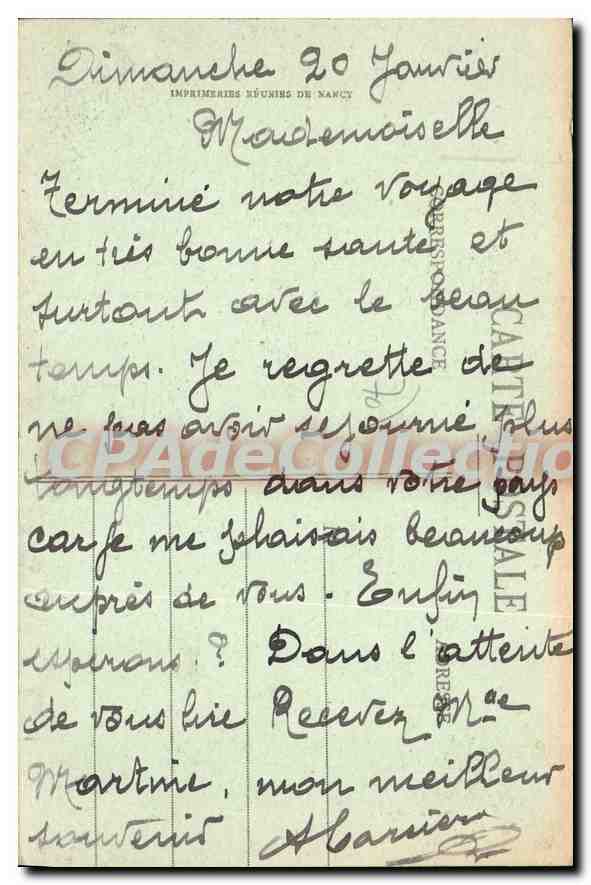 Dimanche 20 Janvier
IMPRIMERIES RÉUNIES DE NANCY
Mademoiselle
Terminé notre voyage
en très bonne santé et
surtout avec le beau
temps. Je regrette de
ne pas avoir séjourné plus
longtemps dans votre pays
car je me plaisais beaucoup
auprès de vous. Enfin
esperons.? Dans l'attente
de vous lire Recevez Mlle
Martine, mon meilleur
souvenir
CARTE POSTALE
CORRESPONDANCE
ADRESSE
CPAdeCollection